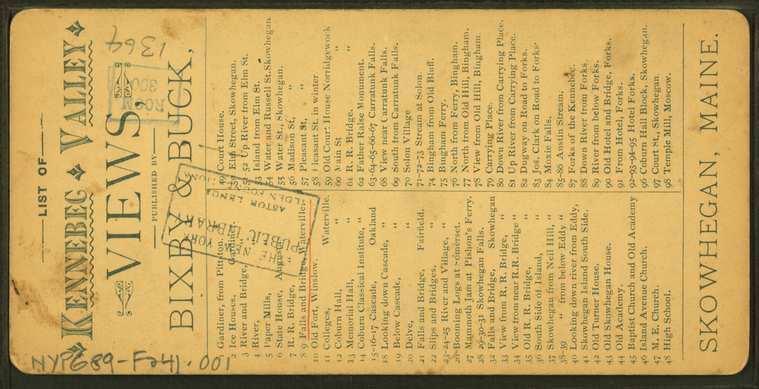 LIST OF
KENNEBEC VALLEY
VIEWS
PUBLISHED BY
BIXBY & BUCK,
1364
ROOM
300
THE NEW YORK
PUBLIC LIBRARY
ASTOR, LENOX
TILDEN FOUNDATIONS
Gardiner, from Pittston.
2 Ice Houses, Gardiner.
3 River and Bridge, "
4 River,
5 Paper Mills,
6 State House, Augusta
7 R. R. Bridge, "
8-9 Falls and Bridge, Waterville
10 Old Fort, Winslow.
11 Colleges, Waterville.
12 Coburn Hall, "
13 Memorial Hall, "
14 Coburn Classical Institute, "
15-16-17 Cascade, Oakland
18 Looking down Cascade, "
19 Below Cascade, "
20 Delve,
21 Falls and Bridge, Fairfield.
22 Slips and Bridges, "
23-24-25 River and Village, "
26 Booming Logs at Somerset.
27 Mammoth Jam at Pishon's Ferry.
28-29-30-31 Skowhegan Falls.
32 Falls and Bridge, Skowhegan
33 View from R. R. Bridge, "
34 View from near R.R. Bridge "
35 Old R. R. Bridge, "
36 South Side of Island, "
37 Skowhegan from Neil Hill, "
38-39 " from below Eddy "
40 Looking down river from Eddy,
41 Skowhegan Island South Side.
42 Old Turner House.
43 Old Skowhegan House.
44 Old Academy.
45 Baptist Church and Old Academy
46 Island Avenue Church.
47 M. E. Church.
48 High School.
Court House.
Elm Street, Skowhegan.
52 Up River from Elm St.
53 Island from Elm St.
54 Water and Russell St. Skowhegan
55 Water St., Skowhegan.
56 Madison St, "
57 Pleasant St, "
58 Pleasant St, in winter
59 Old Court House Norridgewock
60 Main St "
61 R. R. Bridge. "
62 Father Ralse Monument.
63-64-65-66-67 Carratunk Falls.
68 View near Carratunk Falls.
69 South from Carratunk Falls.
70 Solon Village
71-72-73 Stream at Solon.
74 Bingham from Old Bluff.
75 Bingham Ferry.
76 North from Ferry, Bingham.
77 North from Old Hill, Bingham.
78 View from Old Hill, Bingham.
79 Carrying Place.
80 Down River from Carrying Place.
81 Up River from Carrying Place.
82 Dugway on Road to Forks.
83 Jos. Clark on Road to Forks.
84 Moxie Falls.
85-86 Austin Stream.
87 Forks of the Kennebec.
88 Down River from Forks.
89 River from below Forks.
90 Old Hotel and Bridge, Forks.
91 From Hotel, Forks.
92-93-94-95 Hotel Forks.
96 Coburn Hall Block, Skowhegan.
97 Court St., Skowhegan.
98 Temple Mill, Moscow.
SKOWHEGAN, MAINE.
NYPG89-F241.001